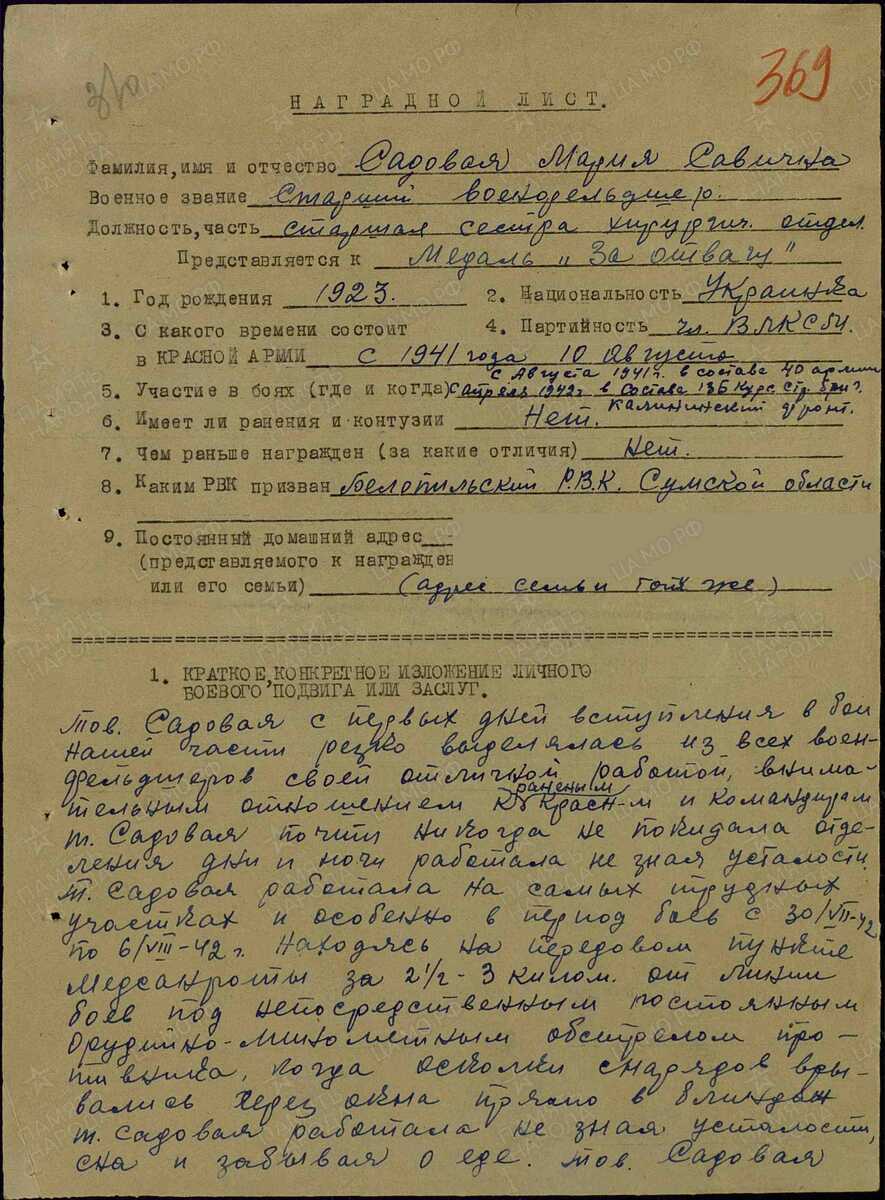 310
369
НАГРАДНОЙ ЛИСТ.
Фамилия, имя и отчество Садовая Мария Савична
Военное звание Старший военфельдшер.
Должность, часть старшая сестра хирургич. отдел.
Представляется к Медаль „За отвагу"
1. Год рождения 1923. 2. Национальность Украинка
3. С какого времени состоит 4. Партийность чл. ВЛКСМ.
в КРАСНОЙ АРМИИ с 1941 года 10 августа
с Августа 1941 г. в состава 40 армии
5. Участие в боях (где и когда) с апреля 1942 г в состава 136 Курс. стр. бриг.
Калининский фронт.
6. Имеет ли ранения и контузии Нет.
7. Чем раньше награжден (за какие отличия) Нет.
8. Каким РВК призван Белопильский Р.В.К. Сумской области
9. Постоянный домашний адрес
(представляемого к награжден
или его семьи) (адрес семьи той же)
1. КРАТКОЕ, КОНКРЕТНОЕ ИЗЛОЖЕНИЕ ЛИЧНОГО
БОЕВОГО ПОДВИГА ИЛИ ЗАСЛУГ.
Тов. Садовая с первых дней вступления в бои
нашей части резко выделялась из всех воен-
фельдшеров своей отличной работой, внима-
раненым
тельным отношением к Красн-м и командирам
т. Садовая почти никогда не покидала отде-
ления дни и ночи работала не зная усталости.
т. Садовая работала на самых трудных
участках и особенно в период боев с 30/VII-42
по 6/VIII-42 г. Находясь на передовом пункте
Медсанроты за 2 1/2 - 3 килом. от линии
боев под непосредственным постоянным
Орудийно-минометным обстрелом про-
тивника, когда осколки снарядов вры-
вались через окна прямо в блиндаж
т. Садовая работала не зная усталости,
сна и забывая о еде. тов. Садовая